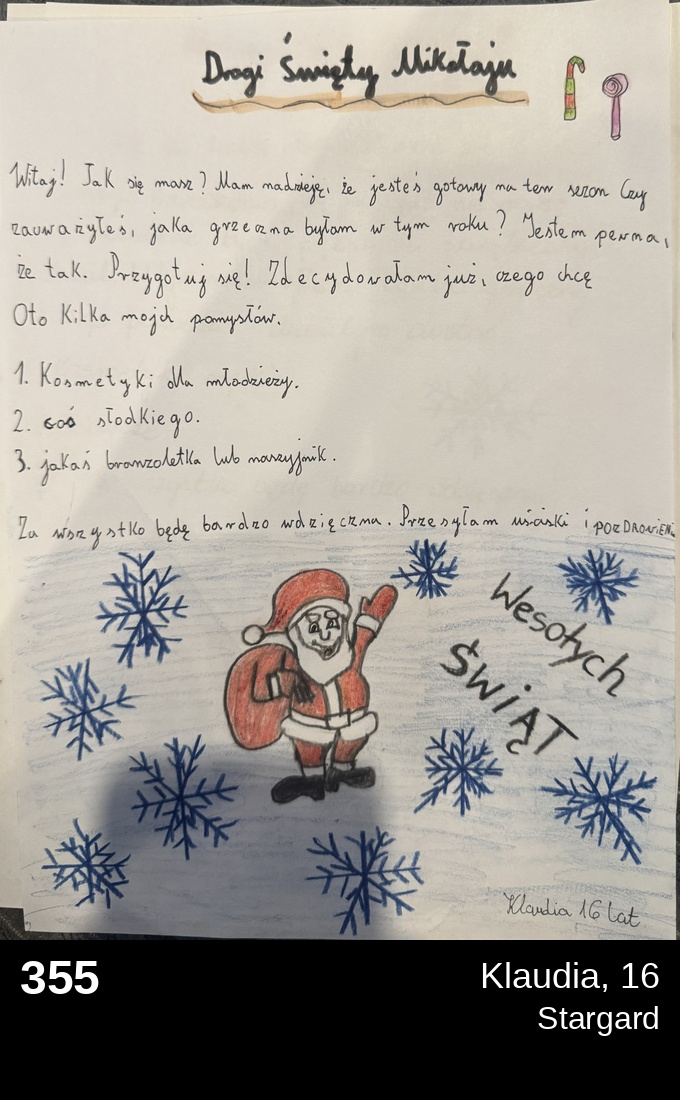 Drogi Święty Mikołaju
Witaj! Jak się masz? Mam nadzieję, że jesteś gotowy na ten sezon Czy
zauważyłeś, jaka grzeczna byłam w tym roku? Jestem pewna,
że tak. Przygotuj się! Zdecydowałam już, czego chcę
Oto kilka moich pomysłów.
1. Kosmetyki dla młodzieży.
2. coś słodkiego.
3. jakaś branzoletka lub naszyjnik.
Za wszystko będę bardzo wdzięczna. Przesyłam uściski i POZDROWIENIA
Wesołych
ŚWIĄT
Klaudia 16 lat
355
Klaudia, 16
Stargard